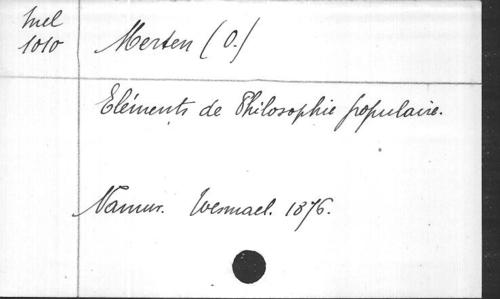 Mel
1010
Merten (O.)
Eléments de Philosophie populaire.
Namur. Wesmael. 1876.